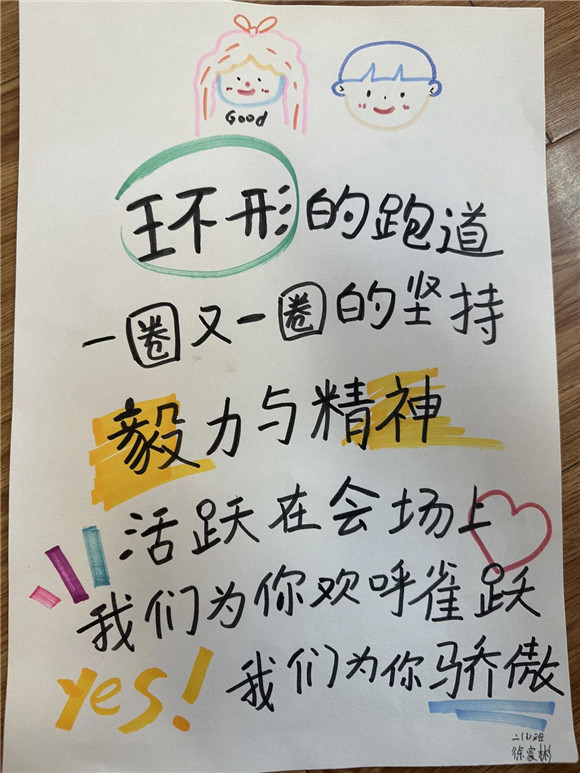 Good
环形的跑道
一圈又一圈的坚持
毅力与精神
活跃在会场上
我们为你欢呼雀跃
yes!
我们为你骄傲